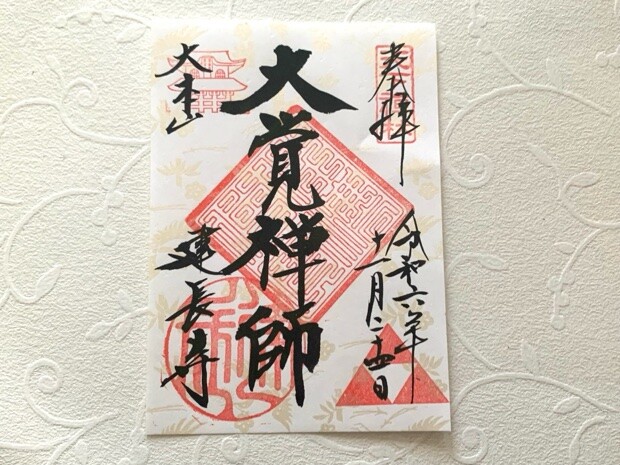 奉拝
令和六年
十一月二十四日
大覚禅師
大本山
建長寺